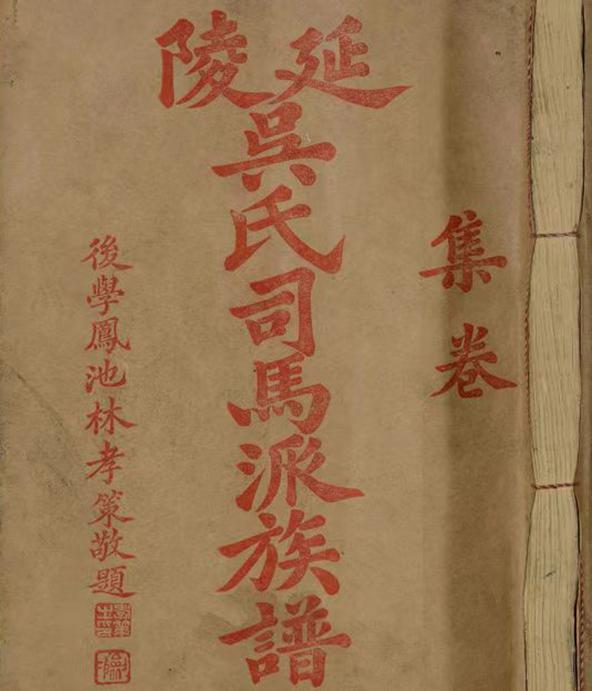 集卷
延陵
吳氏司馬派族譜
後學鳳池林孝策敬題